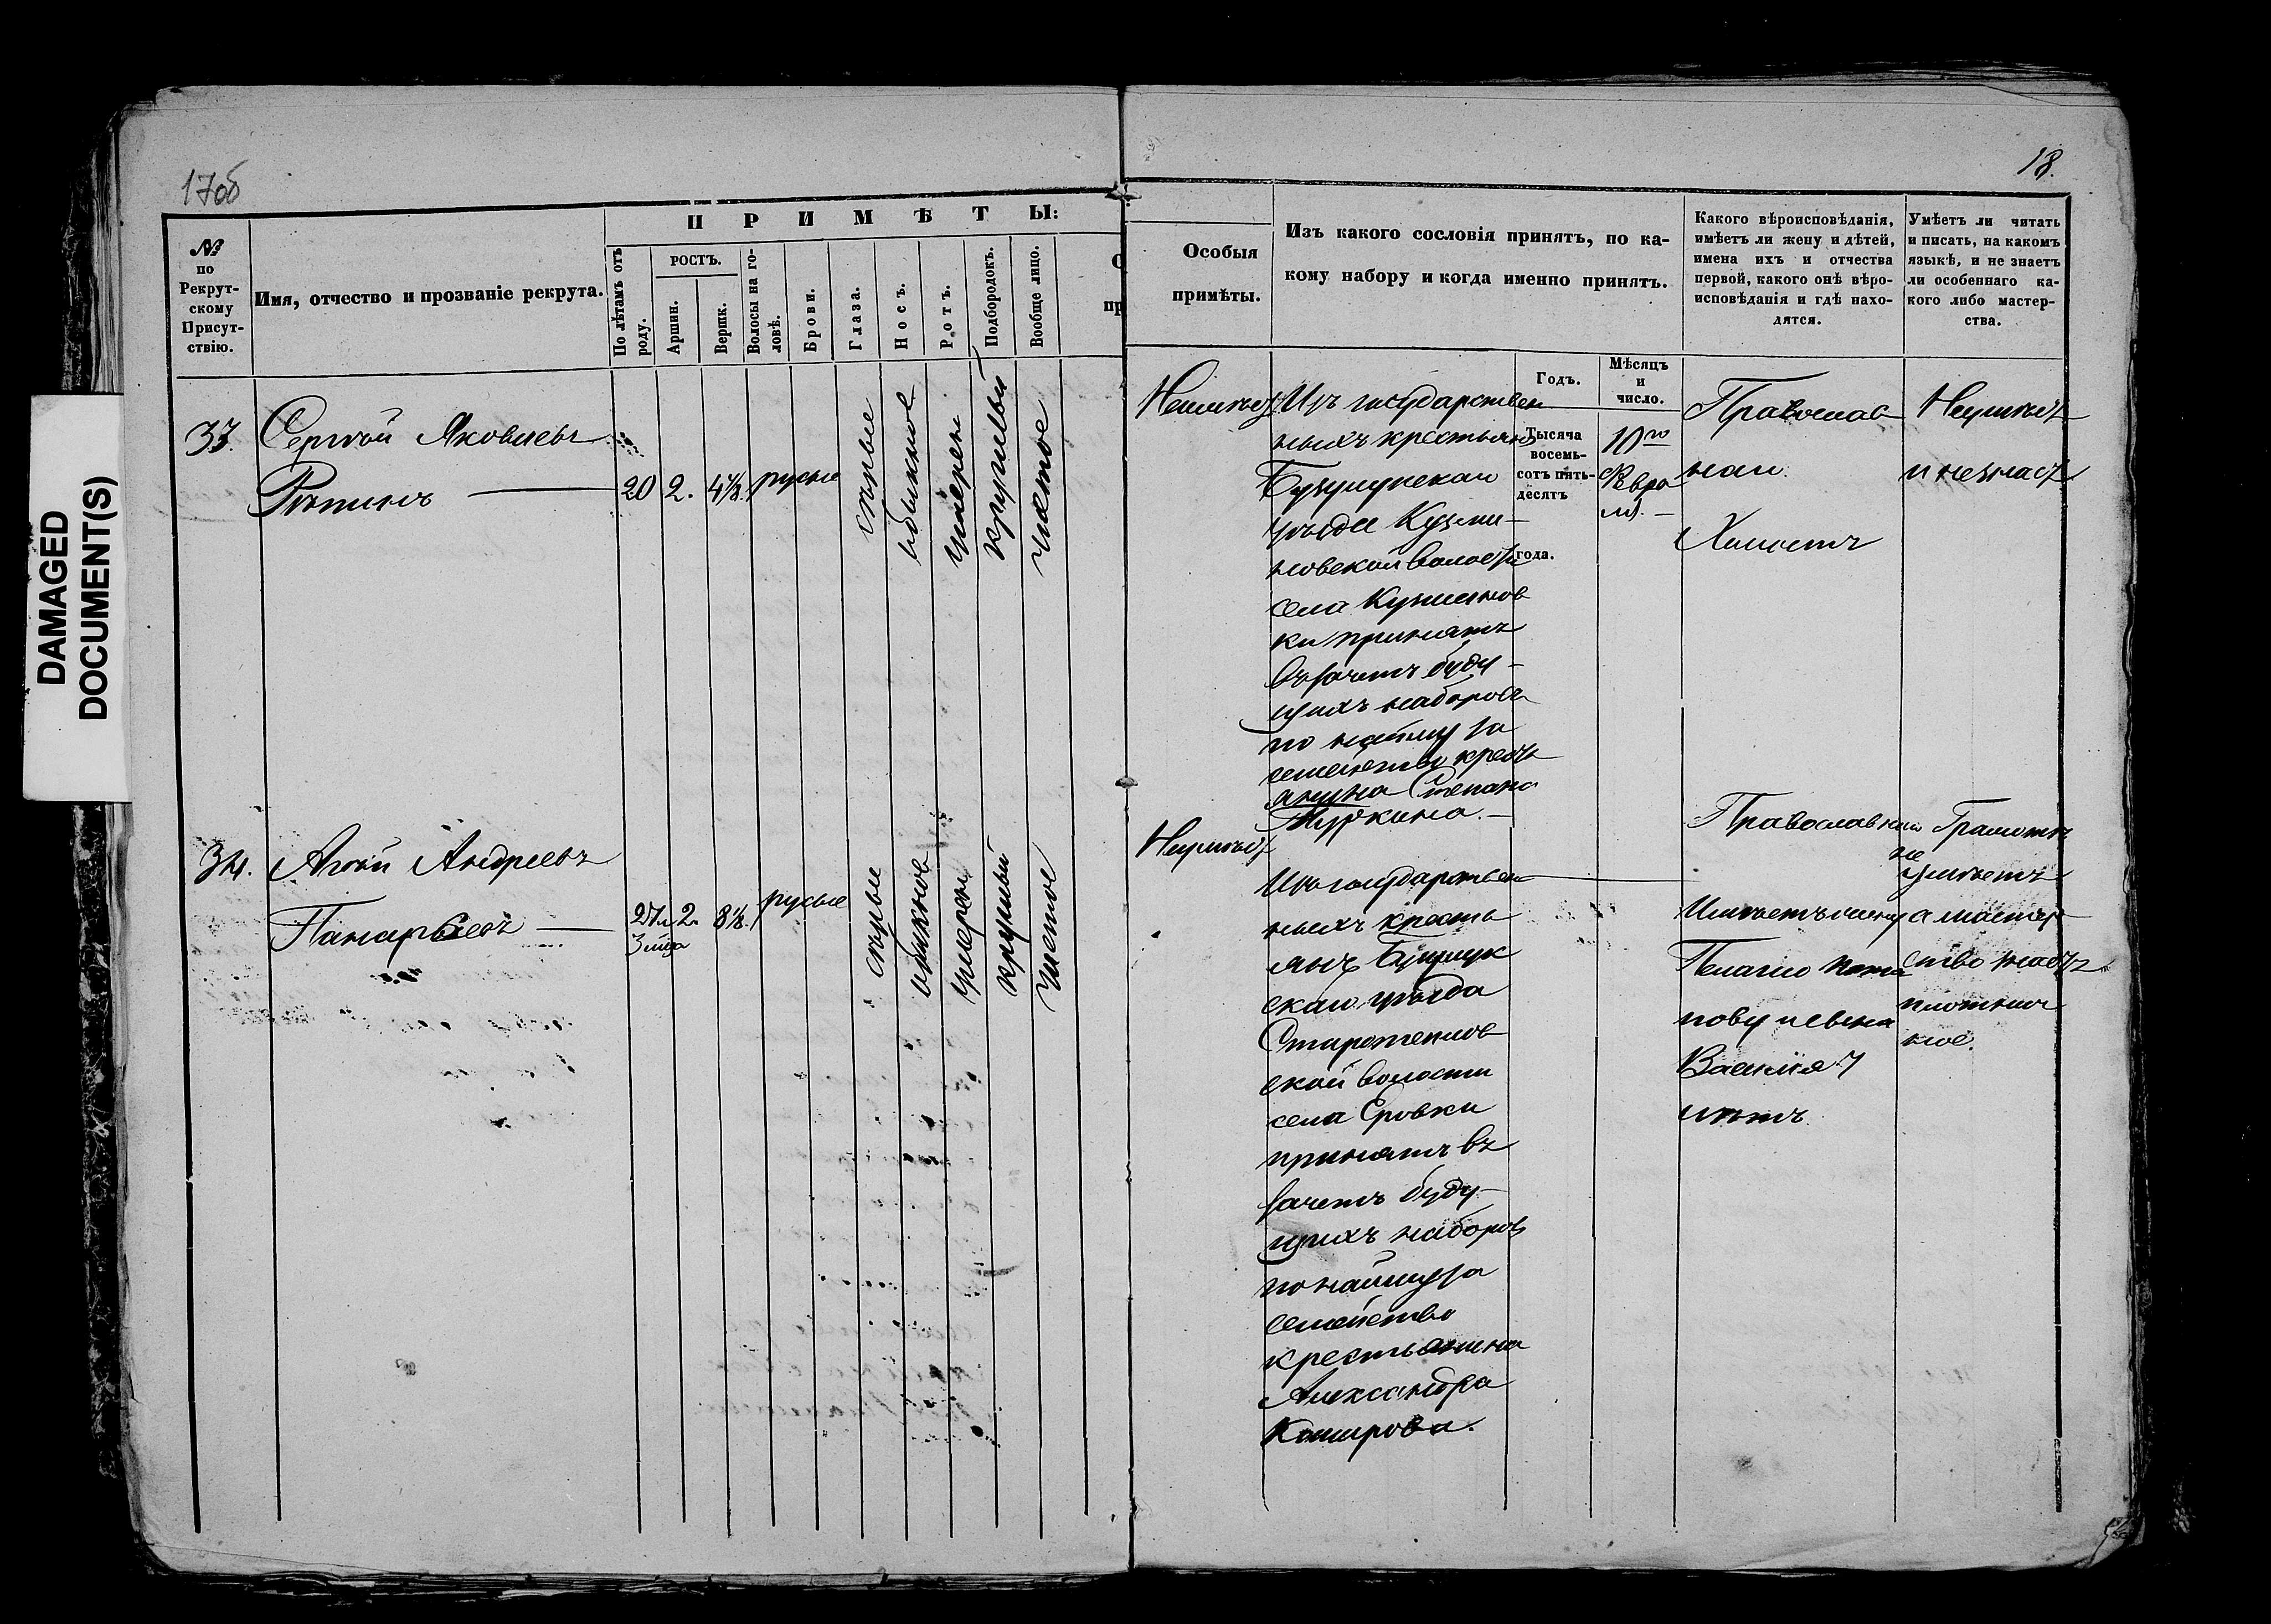 DAMAGED
DOCUMENT(S)
17об
18.
ПРИМѢТЫ:
№
по
Рекрут-
скому
Присут-
ствію.
Имя, отчество и прозваніе рекрута.
По лѣтамъ отъ
роду.
РОСТЪ.
Аршин.
Вершк.
Волосы на го-
ловѣ.
Брови.
Глаза.
Носъ.
Ротъ.
Подбородокъ.
Вообще лицо.
Особыя
примѣты.
Изъ какого сословія принятъ, по ка-
кому набору и когда именно принятъ.
Какого вѣроисповѣданія,
имѣетъ ли жену и дѣтей,
имена ихъ и отчества
первой, какого онѣ вѣро-
исповѣданія и гдѣ нахо-
дятся.
Умѣетъ ли читать
и писать, на какомъ
языкѣ, и не знаетъ
ли особеннаго ка-
кого либо мастер-
ства.
Годъ.
Мѣсяцъ
и
число.
33.
Сергѣй Яковлевъ
Рѣпинъ
20
2.
4⅛.
русые
сѣрые
обыкнов
умѣрен
круглый
чистое
Неимѣет
Изъ государствен
ныхъ крестьянъ
Бузулукскаго
уѣзда Кузми-
новской волости
села Кузминов
ки принятъ
въ зачетъ буду-
щихъ наборовъ
по найму за
семейство кресть
янина Степана
Тысяча
восемь-
сотъ пять-
десятъ
года.
10го
Февра
ля.
Православ
ный.
Холостъ
Неумѣет
и не знает
34.
Агѣй Андреевъ
27л
3 мца
2.
8⅛.
русые
сѣрые
обыкнов
умѣрен
круглый
чистое
Неимѣет
Изъ государствен
ныхъ кресть
янъ Бузулук
скаго уѣзда
ской волости
принятъ въ
зачетъ буду-
щихъ наборовъ
по найму за
семейство
крестьянина
Александра
Православный
Имѣетъ жену
Пелагею Пота
пову и сына
Василія 7
лѣтъ.
Грамотѣ
не
умѣетъ
а мастер
ство знаетъ
плотнич
ное.